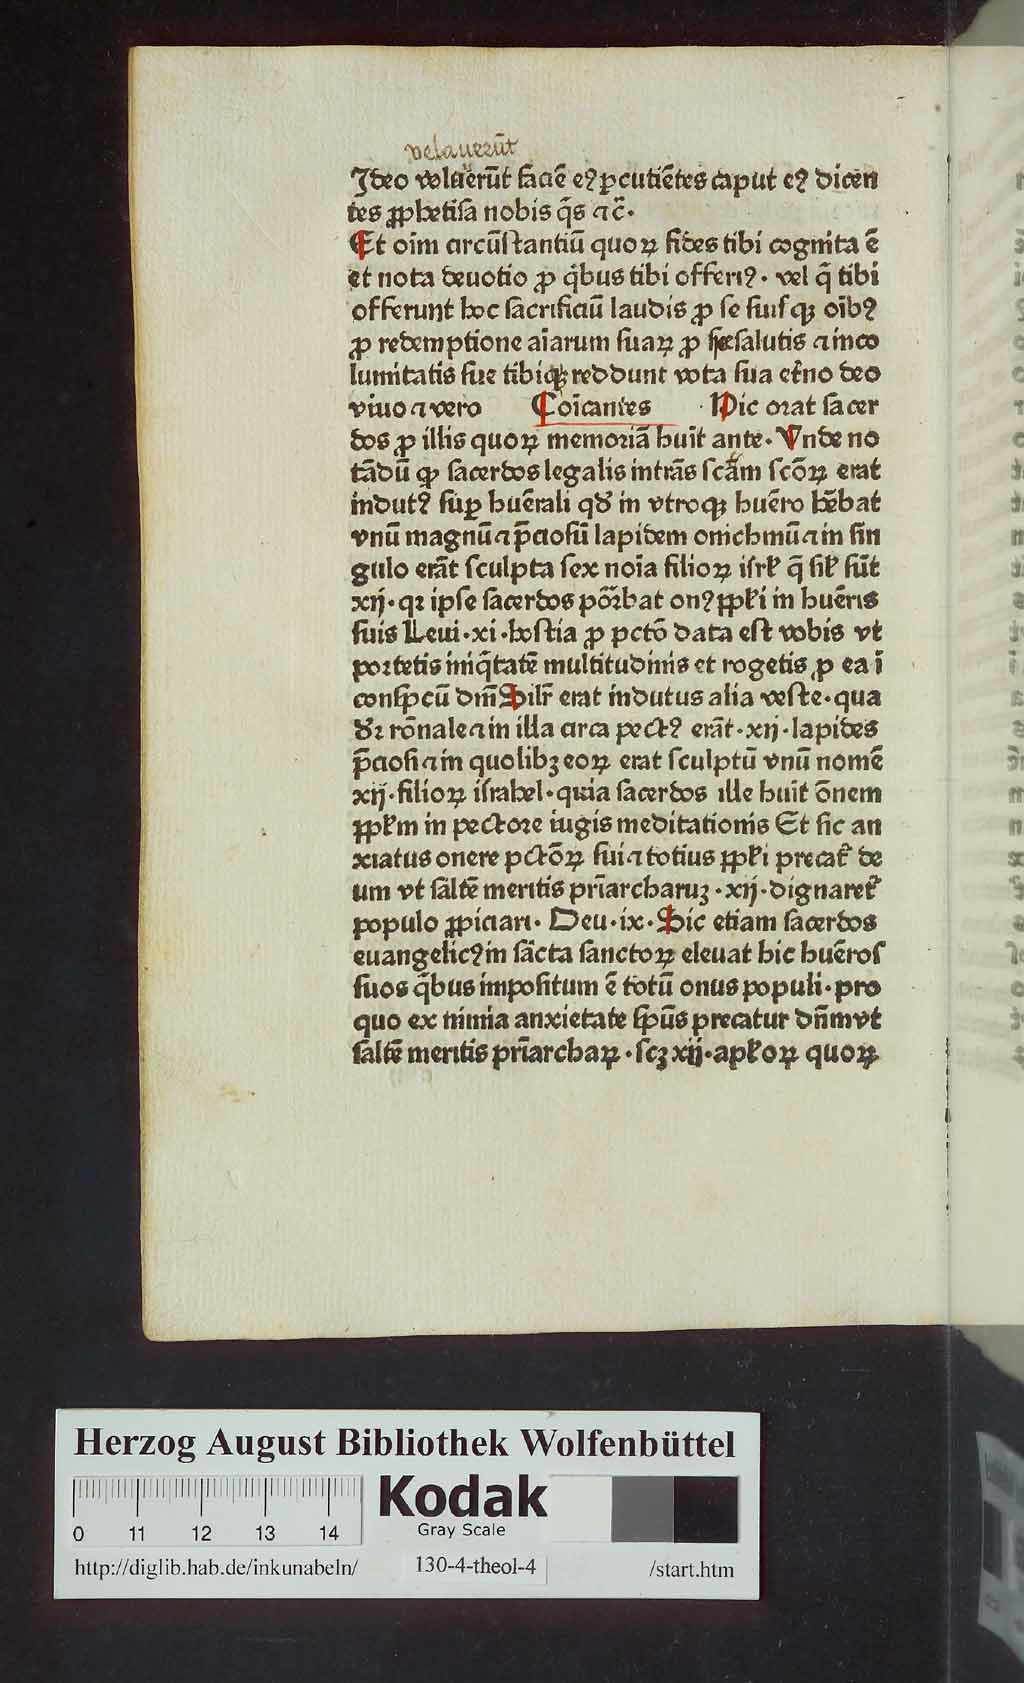 velauerūt
Ideo voluerūt faciē eꝰ ꝑcutiētes caput eꝰ dicen
tes ꝓphetiſa nobis q̄s ⁊ c̄·
Et oīm circūſtantiū quoꝝ fides tibi cognita ē
et nota deuotio ꝓ q̄bus tibi offeriꝰ· vel q̄ tibi
offerunt hoc ſacrificiū laudis ꝓ ſe ſuiſqꝫ oībꝰ
ꝓ redemptione aīarum ſuaꝝ ꝓ ſpe ſalutis ⁊ inco
lumitatis ſue tibiqꝫ reddunt vota ſua et̄no deo
viuo ⁊ vero Coīcantes Hic orat ſacer
dos ꝓ illis quoꝝ memoriā huit ante· Vnde no
tādū ꝙ ſacerdos legalis intrās ſcām ſcōꝝ erat
indutꝰ ſuꝑ huērali qd̄ in vtroqꝫ huēro hēbat
vnū magnū ⁊ p̄cioſū lapidem onichmū ⁊ in ſin
gulo erāt ſculpta ſex noīa filioꝝ iſrl̄ q̄ ſil̄ ſūt
xij· qꝛ ipſe ſacerdos pōꝛbat onꝰ ppl̄i in huēris
ſuis Leui·xi·hoſtia ꝓ pctō data eſt vobis vt
portetis iniq̄tatē multitudinis et rogetis ꝓ ea ī
conſpcū dm̄ Silr̄ erat indutus alia veſte· qua
dꝛ rōnale ⁊ in illa circa pectꝰ erāt·xij·lapides
p̄cioſi ⁊ in quolibꝫ eoꝝ erat ſculptū vnū nomē
xij·filioꝝ iſrahel·quia ſacerdos ille huit ōnem
ppl̄m in pectore iugis meditationis Et ſic an
xiatus onere pctōꝝ ſui ⁊ totius ppl̄i precat̄ de
um vt ſaltē meritis pr̄iarcharuꝫ·xij·dignaret̄
populo ꝓpiciari· Deu·ix· Sic etiam ſacerdos
euangelicꝰ in ſācta ſanctoꝝ eleuat hic huēroſ
ſuos q̄bus impoſitum ē totū onus populi·pro
quo ex nimia anxietate ſpūs precatur dn̄m vt
ſaltē meritis pr̄iarchaꝝ·ſcꝫ xij·apl̄oꝝ quoꝝ
Herzog August Bibliothek Wolfenbüttel
Kodak
Gray Scale
0 11 12 13 14
http://diglib.hab.de/inkunabeln/ 130-4-theol-4 /start.htm